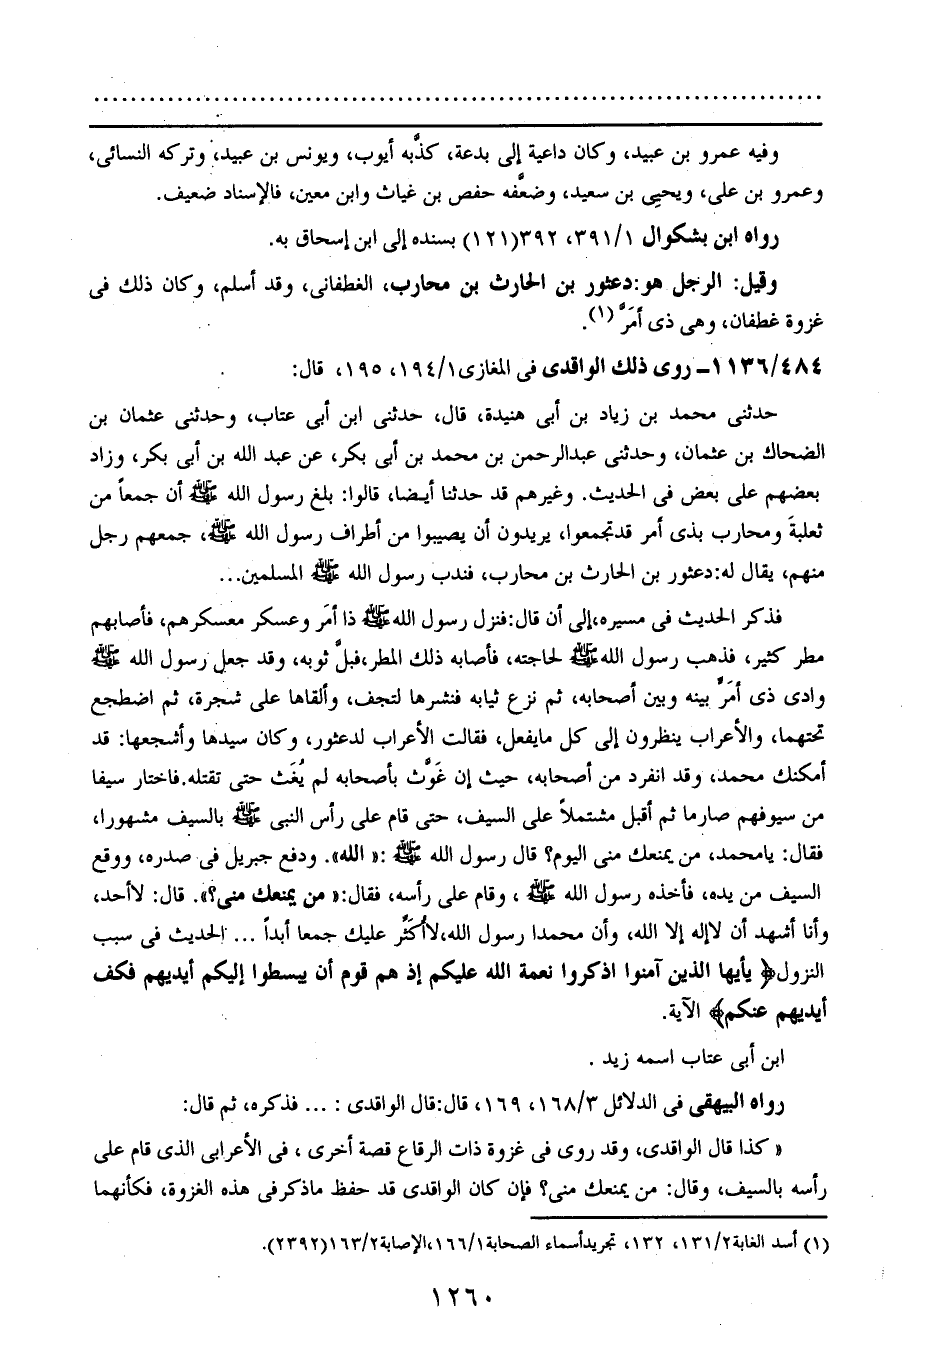 وفيه عمرو بن عبيد، وكان داعية إلى بدعة، كذَّبه أيوب، ويونس بن عبيد، وتركه النسائى،
وعمرو بن على، ويحيى بن سعيد، وضعَّفه حفص بن غياث وابن معين، فالإسناد ضعيف.
رواه ابن بشكوال ٣٩١/١، ٣٩٢(١٢١) بسنده إلى ابن إسحاق به.
وقيل: الرجل هو:دعثور بن الحارث بن محارب، الغطفانى، وقد أسلم، وكان ذلك فى
غزوة غطفان، وهى ذى أمَرَّ (١).
١١٣٦/٤٨٤ــ روى ذلك الواقدى فى المغازى١٩٤/١، ١٩٥، قال:
حدثنى محمد بن زياد بن أبى هنيدة، قال، حدثنى ابن أبى عتاب، وحدثنى عثمان بن
الضحاك بن عثمان، وحدثنى عبدالرحمن بن محمد بن أبى بكر، عن عبد الله بن أبى بكر، وزاد
بعضهم على بعض فى الحديث. وغيرهم قد حدثنا أيضا، قالوا: بلغ رسول الله ﷺ أن جمعاً من
ثعلبةَ ومحارب بذى أمر قدتجمعوا، يريدون أن يصيبوا من أطراف رسول الله ﷺ، جمعهم رجل
منهم، يقال له:دعثور بن الحارث بن محارب، فندب رسول الله ﷺ المسلمين...
فذكر الحديث فى مسيره،إلى أن قال:فنزل رسول الله ﷺ ذا أمَر وعسكر معسكرهم، فأصابهم
مطر كثير، فذهب رسول الله ﷺ لحاجته، فأصابه ذلك المطر،فبلَّ ثوبه، وقد جعل رسول الله ﷺ
وادى ذى أمَرَّ بينه وبين أصحابه، ثم نزع ثيابه فنشرها لتجف، وألقاها على شجرة، ثم اضطجع
تحتهما، والأعراب ينظرون إلى كل مايفعل، فقالت الأعراب لدعثور، وكان سيدها وأشجعها: قد
أمكنك محمد، وقد انفرد من أصحابه، حيث إن غَوَّث بأصحابه لم يُغَث حتى تقتله.فاختار سيفا
من سيوفهم صارما ثم أقبل مشتملاً على السيف، حتى قام على رأس النبى ﷺ بالسيف مشهورا،
فقال: يامحمد، من يمنعك منى اليوم؟ قال رسول الله ﷺ :« الله». ودفع جبريل فى صدره، ووقع
السيف من يده، فأخذه رسول الله ﷺ ، وقام على رأسه، فقال:« من يمنعك منى؟». قال: لاأحد،
وأنا أشهد أن لاإله إلا الله، وأن محمدا رسول الله،لاأُكَثِّر عليك جمعا أبداً ... الحديث فى سبب
النزول﴿ يأيها الذين آمنوا اذكروا نعمة الله عليكم إذ هم قوم أن يبسطوا إليكم أيديهم فكف
أيديهم عنكم﴾ الآية.
ابن أبى عتاب اسمه زيد .
رواه البيهقى فى الدلائل ١٦٨/٣، ١٦٩، قال:قال الواقدى : ... فذكره، ثم قال:
« كذا قال الواقدى، وقد روى فى غزوة ذات الرقاع قصة أخرى ، فى الأعرابى الذى قام على
رأسه بالسيف، وقال: من يمنعك منى؟ فإن كان الواقدى قد حفظ ماذكرفى هذه الغزوة، فكأنهما
(١) أسد الغابة١٣١/٢، ١٣٢، تجريدأسماء الصحابة١٦٦/١،الإصابة١٦٣/٢(٢٣٩٢).
١٢٦٠